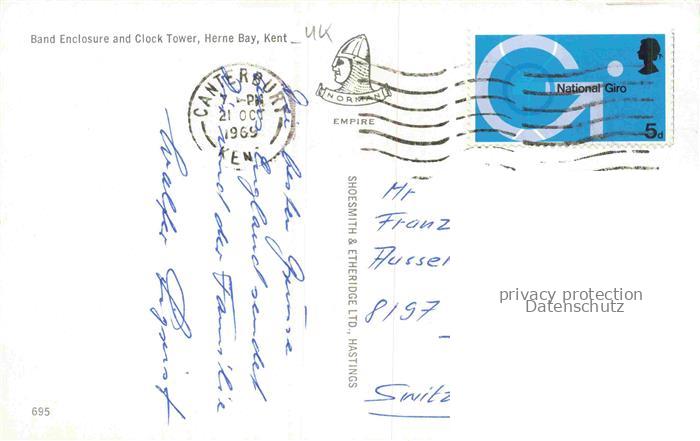 Band Enclosure and Clock Tower, Herne Bay, Kent
UK
CANTERBURY
PM
21 OCT
1969
KENT
NORMAN
EMPIRE
National Giro
5d
besten Grüsse
England sendet
und der Familie
Walter
SHOESMITH & ETHERIDGE LTD., HASTINGS
Mr
Franz
Ausser
8197
Switz
privacy protection
Datenschutz
695